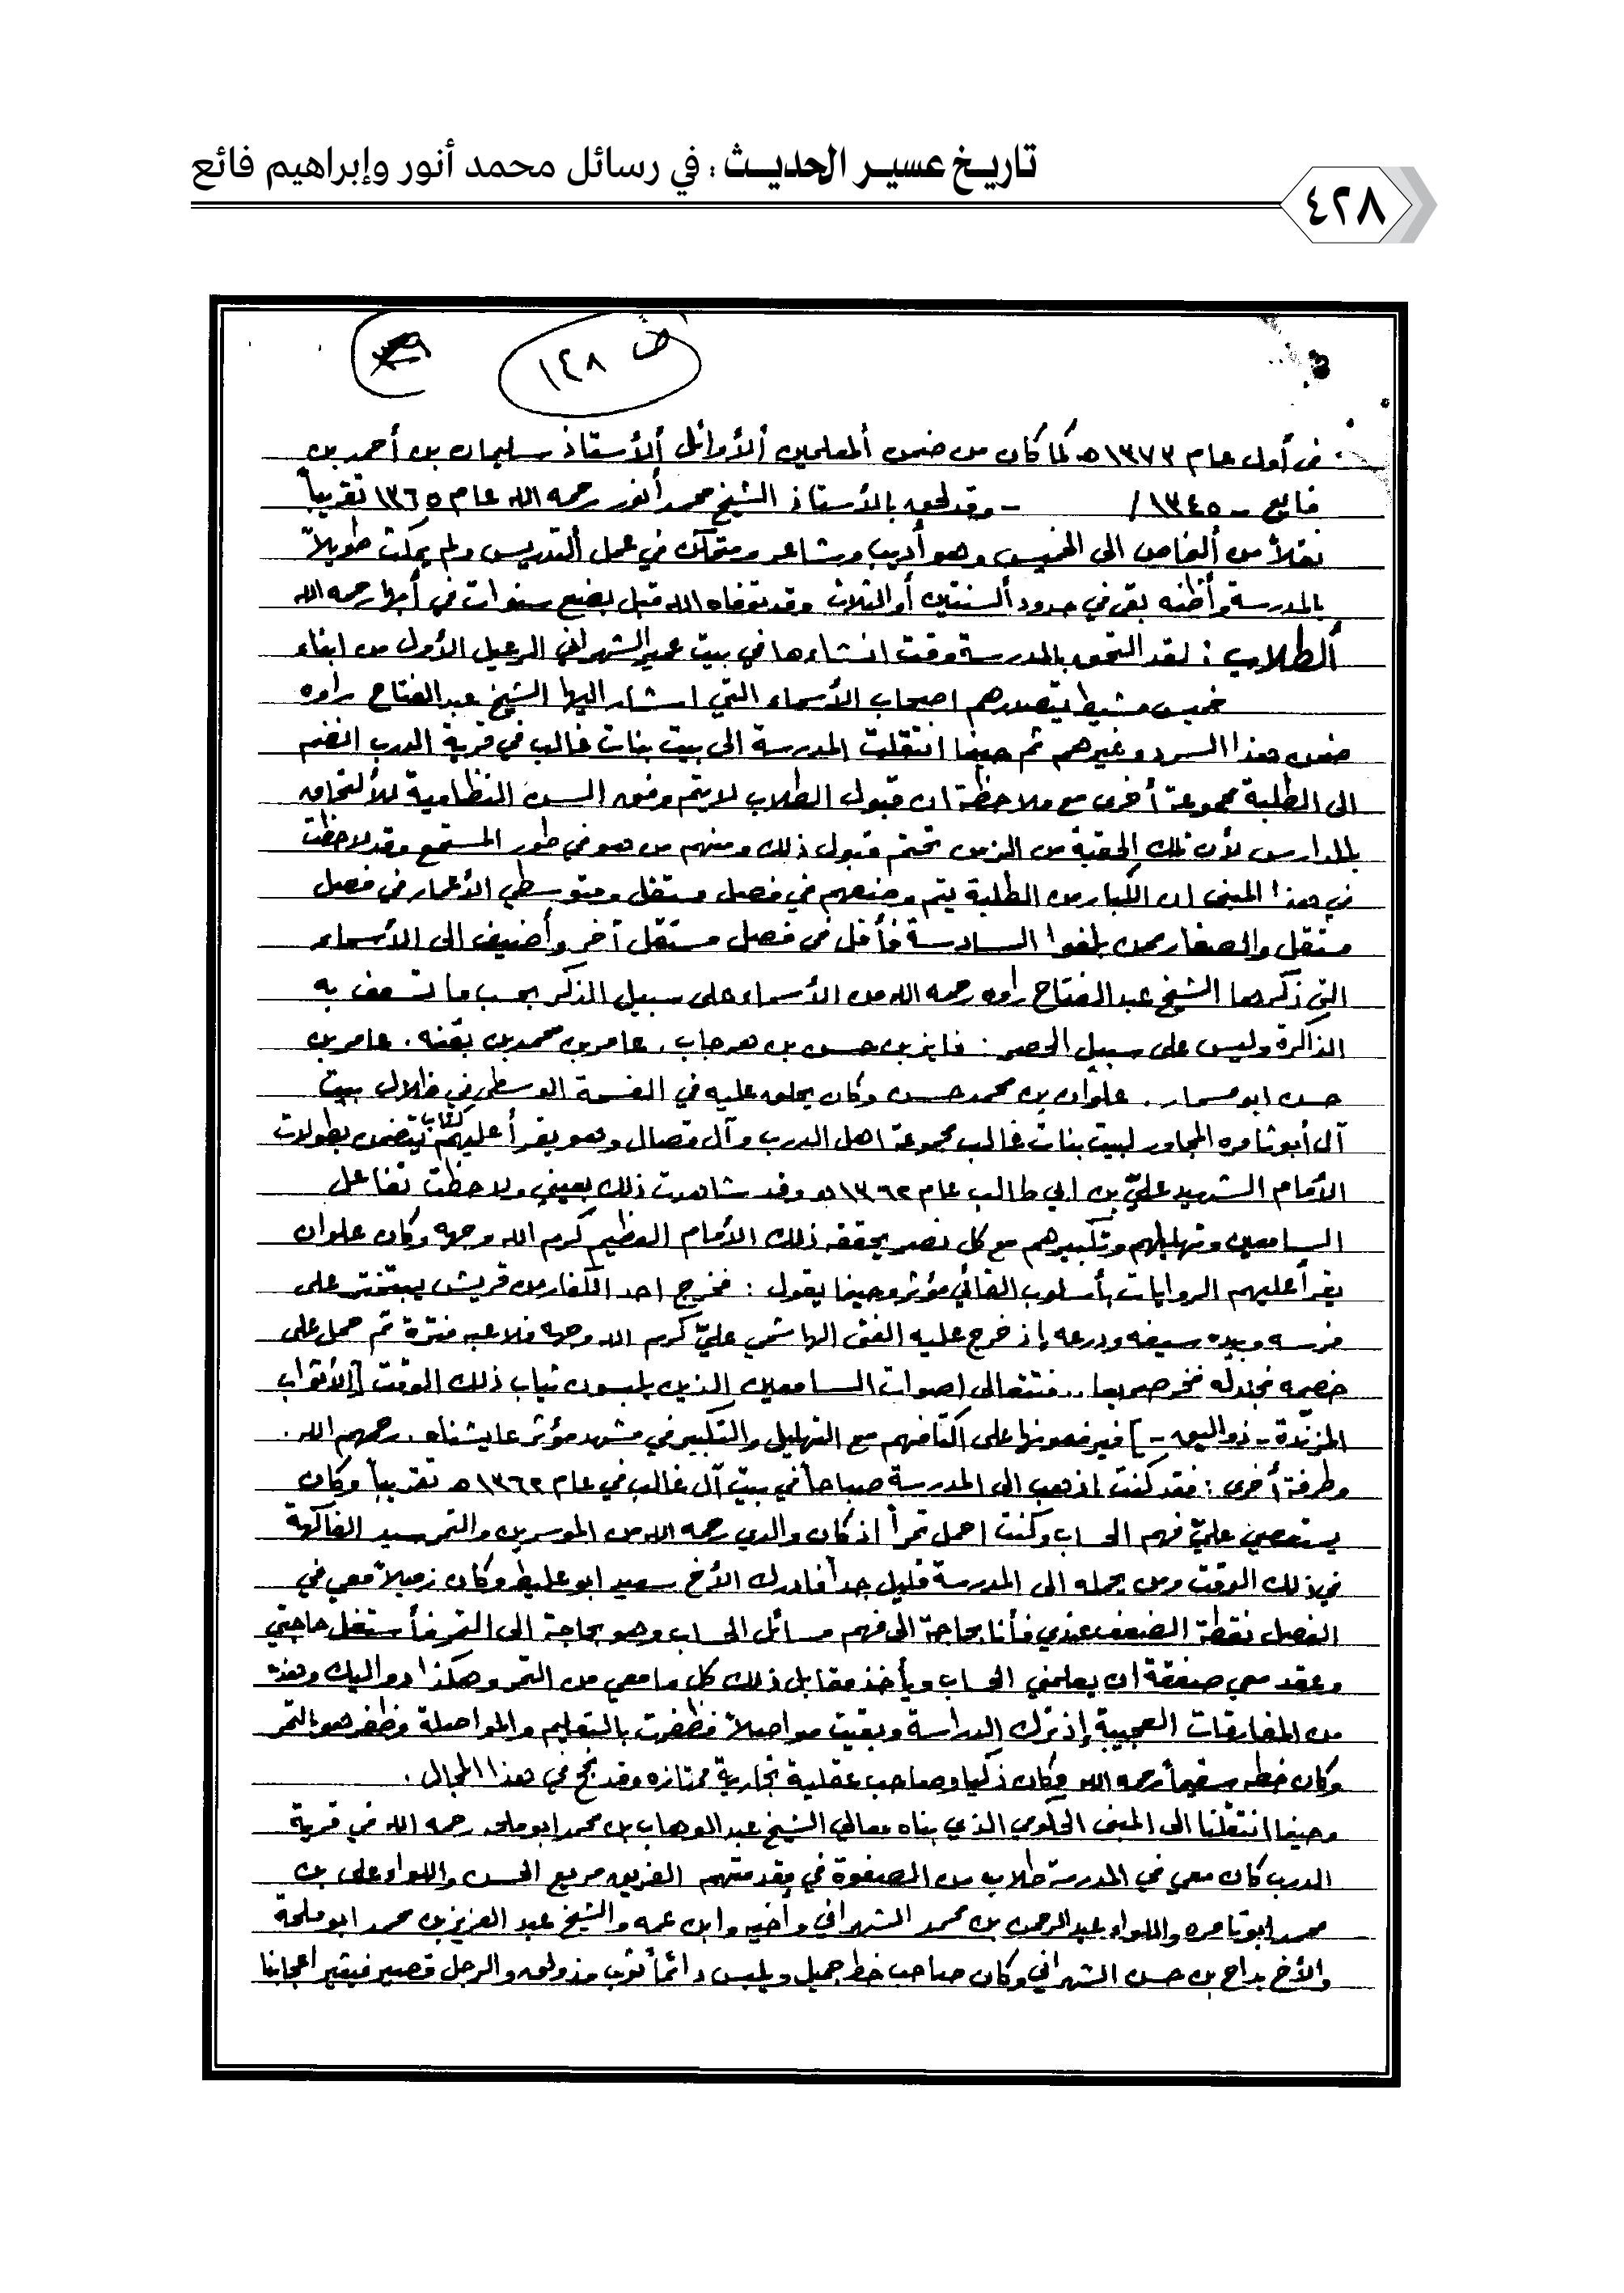 تاريخ عسير الحديث : في رسائل محمد أنور وإبراهيم فائع
٤٢٨
ص ١٤٨
في أول عام ١٣٧٣هـ كما كان من ضمن ألمعلمين ألأوائل ألأستاذ سليمان بن أحمد بن
فايع - ١٣٤٥ / - وقد لحق بالأستاذ الشيخ محمد أنور رحمه الله عام ١٣٦٥ تقريباً
نقلاً من ألخاص الى الخميس وهو أديب وشاعر ومتمكن في عمل ألتدريس ولم يمكث طويلاً
بالمدرسة وأظنه بقي في حدود ألسنتين أو الثلاث وقد توفاه الله قبل بضع سنوات في أبها رحمه الله
ألطلاب : لقد التحق بالمدرسة وقت انشاءها في بيت عمير الشهراني الرعيل الأول من ابناء
خميس مشيط يتصدرهم اصحاب الأسماء التي اشار اليها الشيخ عبدالفتاح راوه
ضمن هذا السرد وغيرهم ثم حينما انتقلت المدرسة الى بيت بنات غالب في قرية الدرب انضم
الى الطلبة مجموعة أخرى مع ملاحظة ان قبول الطلاب لا يتم وفق السن النظامية للألتحاق
بالمدارس لأن تلك الحقبة من الزمن تحتم قبول ذلك ومنهم من هو في طور المستمع وقد لاحظت
في هذا المبنى ان الكبار من الطلبة يتم وضعهم في فصل مستقل ومتوسطي الأعمار في فصل
مستقل والصغار ممن بلغوا السادسة فأقل في فصل مستقل آخر وأضيف الى الأسماء
التي ذكرها الشيخ عبدالفتاح راوه رحمه الله من الأسماء على سبيل الذكر بحسب ما تسعف به
الذاكرة وليس على سبيل الحصر : فايز بن حسن بن هرجاب . عامر بن محمد بن بقنه . عامر بن
حسن ابو مسمار . علوان بن محمد حسن وكان يحلق عليه في الفسحة الوسطى في ظلال بيت
آل أبو ثامره المجاور لبيت بنات غالب مجموعة اهل الدرب وآل قصال وهو يقرأ عليهم كتاب يتضمن بطولات
الأمام الشهيد عليّ بن ابي طالب عام ١٣٦٢هـ وقد شاهدت ذلك بعيني ولاحظت تفاعل
السامعين وتهليلهم وتكبيرهم مع كل نصر يحققه ذلك الأمام العظيم كرم الله وجهه وكان علوان
يقرأ عليهم الروايات بأسلوب القائي مؤثر وحينما يقول : فخرج احد الكفار من قريش يتبختر على
فرسه وبيده سيفه ودرعه إذ خرج عليه الفتى الهاشمي عليّ كرم الله وجهه فلاعبه فترة ثم حمل على
خصمه فجندله فخر صريعا .. فتتعالى اصوات السامعين الذين يلبسون ثياب ذلك الوقت [الأثواب
المزندة - ذو اليق -] فيرفعونها على اكتافهم مع التهليل والتكبير في مشهد مؤثر عايشناه . رحمهم الله .
وطرفة أخرى : فقد كنت اذهب الى المدرسة صباحاً في بيت آل غالب في عام ١٣٦٢هـ تقريباً وكان
يستعصي عليّ فهم الحساب وكنت احمل تمراً اذ كان والدي رحمه الله من الموسرين والتمر سيد الفاكهة
في ذلك الوقت ومن يحمله الى المدرسة قليل جداً فادرك الأخ سعيد ابو عليط وكان زميلاً معي في
الفصل نقطة الضعف عندي فأنا بحاجة الى فهم مسائل الحساب وهو بحاجة الى التمر فأستغل حاجتي
وعقد معي صفقة ان يعلمني الحساب ويأخذ مقابل ذلك كل ما معي من التمر وهكذا دواليك وهذه
من المفارقات العجيبة إذ ترك الدراسة وبقيت مواصلاً فظفرت بالتعليم والمواصلة وظفر هو بالتمر
وكان خطه سقيماً رحمه الله وكان ذكيا وصاحب عقلية تجارية ممتازه وقد نجح في هذا المجال .
وحينما انتقلنا الى المبنى الحكومي الذي بناه معالي الشيخ عبدالوهاب بن محمد ابو ملحه رحمه الله في قرية
الدرب كان معي في المدرسة طلاب من الصفوة في مقدمتهم الفريق مريع الحسن واللواء على بن
محمد ابو ثامره واللواء عبدالرحمن بن محمد الشهراني وأخيه وابن عمه والشيخ عبد العزيز بن محمد ابو ملحة
والأخ بداح بن حسن الشهراني وكان صاحب خط جميل ويلبس دائماً ثوب مذولق والرجل قصير فيثير اعجابنا